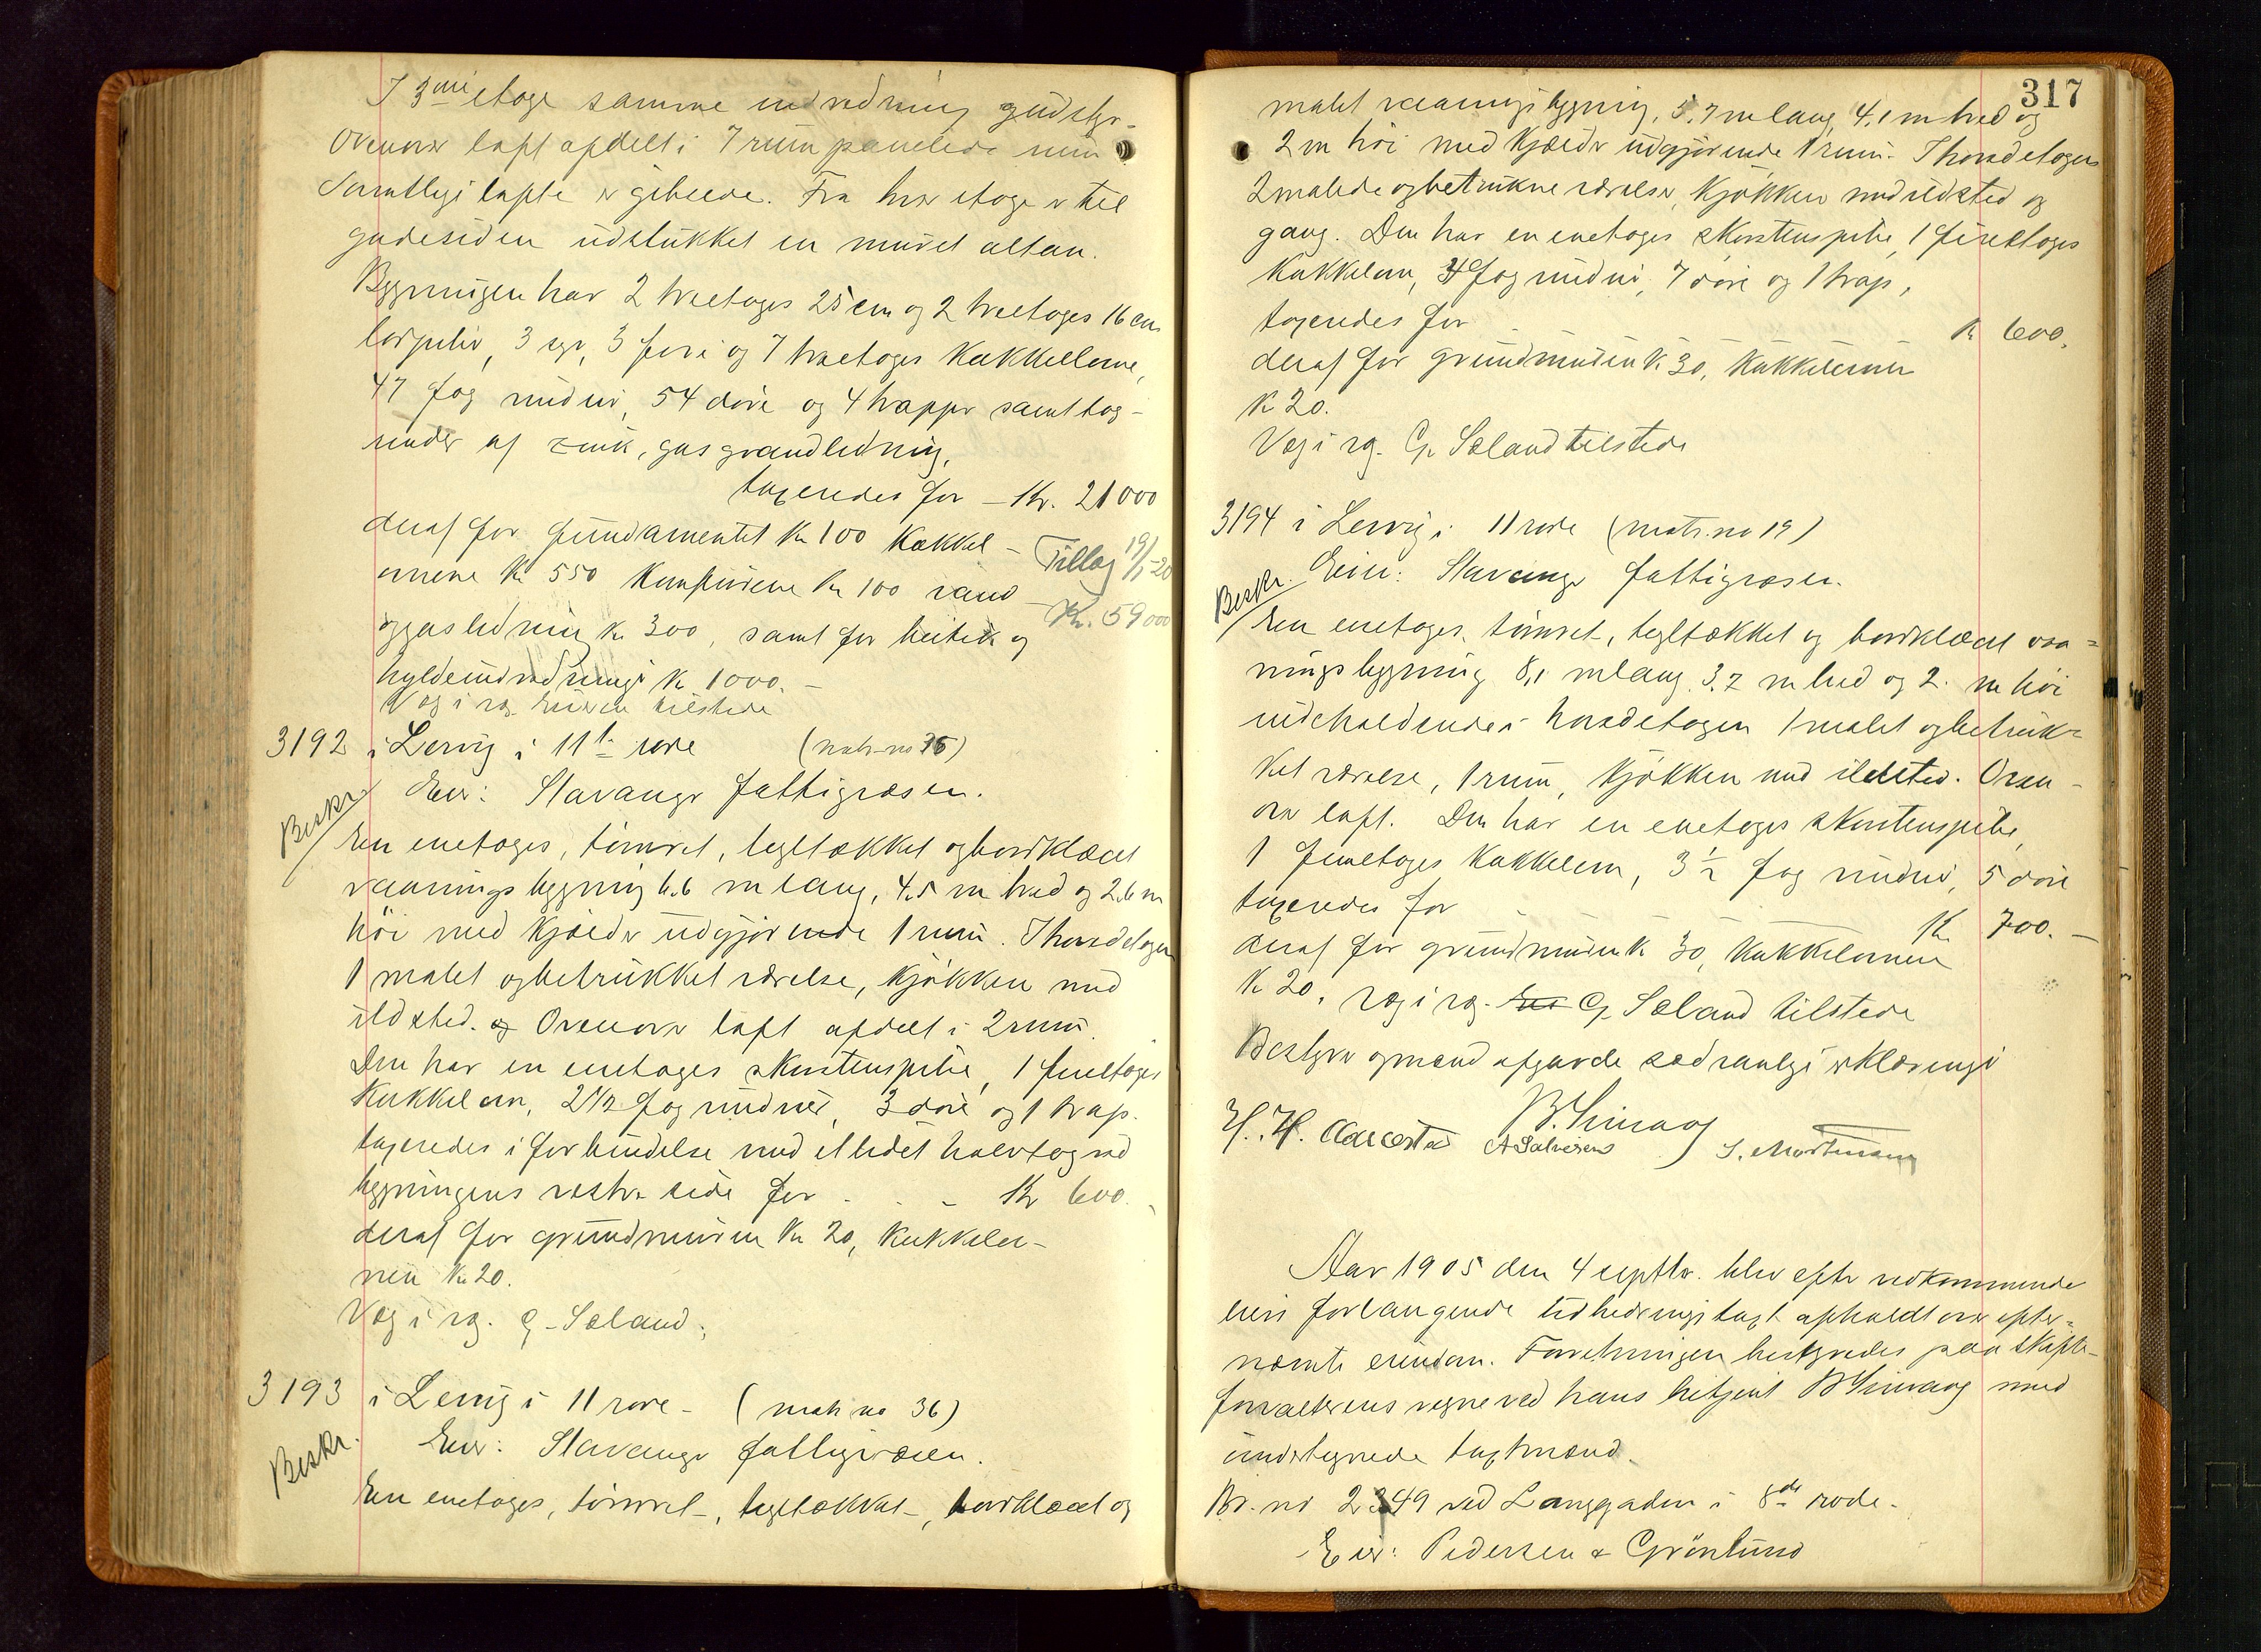 I 3die etage samme indredning gudstyr-
Ovenover loft afdelt i 7 rum panelede rum
Samtlige lofte er gibsede. Fra hver etage er til
gadesiden udstukket en muret altan.
Bygningen har 2 treetages 25 cm og 2 treetages 16 cm
 3 og 7 træetages Kakkellovne,
47 fag vinduer, 54 døre og 4 trapper samt tag-
render af zink, gas  vandledning,
taxeredes for – Kr. 21000
deraf for fundamentet Kr 100 Kakkel-
ovnene Kr 550 Komfurene Kr 100 vand
og gasledning Kr. 300, samt for butik og
hyldeindredninge Kr 1000.–
Tillæg 19/1-20
Kr. 59000
Væg i væg. Eieren tilstede
3192 i Lervig i 11te rode (matr-no 35)
Beskr. Eier: Stavanger fattigvæsen.
En enetages, tømret, tegltækket og bordklædt
vaaningsbygning 6.6 m lang, 4.5 m bred og 2.6 m
høi med kjælder udgjørende 1 rum. I hovedetagen
1 malet og betrukket værelse, kjøkken med
ildsted. og Ovenover loft afdelt i 2 rum.
Den har en enetages skorstenspibe, 1 fireetages
Kakkelovn, 2 1/2 fag vinduer, 3 døre og 1 trap.
taxeredes i forbindelse med et lidet halvtag ved
bygningens vestre side for . . – Kr 600.
deraf for grundmuren Kr 20, Kakkelov-
nen Kr 20.
Væg i væg. G. Sæland.
3193 i Lervig i 11 rode – (matr no 36)
Beskr. Eier: Stavanger fattigvæsen.
En enetages, tømret-, tegltækket-, bordklædt og
317
malet vaaningsbygning, 5,7 m lang, 4,1 m bred og
2 m høi med kjælder udgjørende 1 rum. I hovedetagen
2 malede og betrukne værelser, kjøkken med ildsted og
gang. Den har en enetages skorstenspibe, 1 fireetages
Kakkelovn, 4 fag vinduer, 7 døre og 1 trap,
taxeredes for Kr 600.
deraf for grundmuren Kr 30, Kakkelovnen
Kr 20.
Væg i væg. G. Sæland tilstede
3194 i Lervig i 11 rode (matr.no 19)
Beskr. Eier: Stavanger fattigvæsen.
En enetages, tømret, tegltækket og bordklædt vaa-
ningsbygning 8,1 m lang 3,7 m bred og 2. m høi
indeholdende i hovedetagen 1 malet og betruk-
ket værelse, 1 rum, kjøkken med ildsted. Oven-
over loft. Den har en enetages skorstenspibe,
1 fireetages Kakkelovn, 3 1/2 fag vinduer, 5 døre
taxeredes for Kr 700.–
deraf for grundmuren Kr 30, Kakkelovnen
Kr 20. Væg i væg. G. Sæland tilstede
Bestyrer og mænd afgavde sædvanlige erklæringe
H. H.  A Salvesens S. Mortensen
Aar 1905 den 4 septbr. blev efter vedkommende
eiers forlangende  taxt afholdt over efter-
nævnte eiendom. Forretningen bestyredes paa skifte-
forvalterens vegne ved hans betjent  med
undertegnede taxtmænd.
Br. nr 2249 ved Langgaden i 8de rode.
Eier: Pedersen & Grønlund